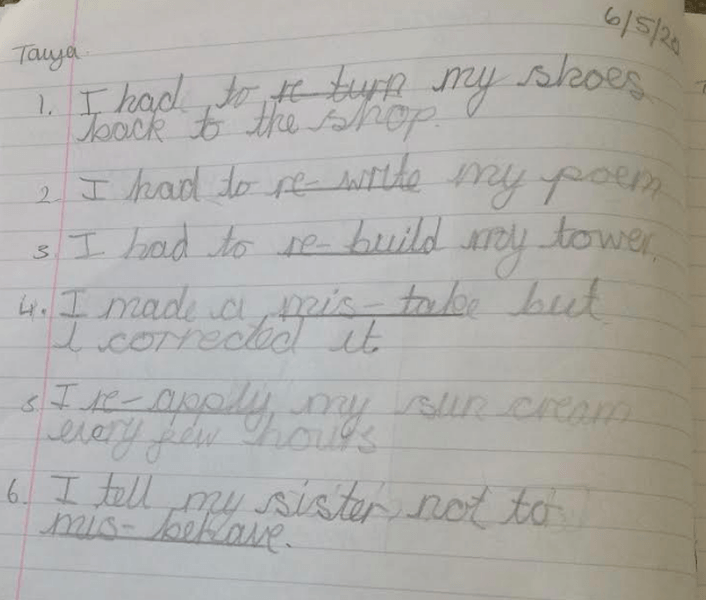 6/5/20
Tanya
1. I had to re turn my shoes
back to the shop.
2. I had to re-write my poem
3. I had to re-build my tower.
4. I made a mis-take but
I corrected it.
5. I re-apply my sun cream
every few hours
6. I tell my sister not to
mis-behave.